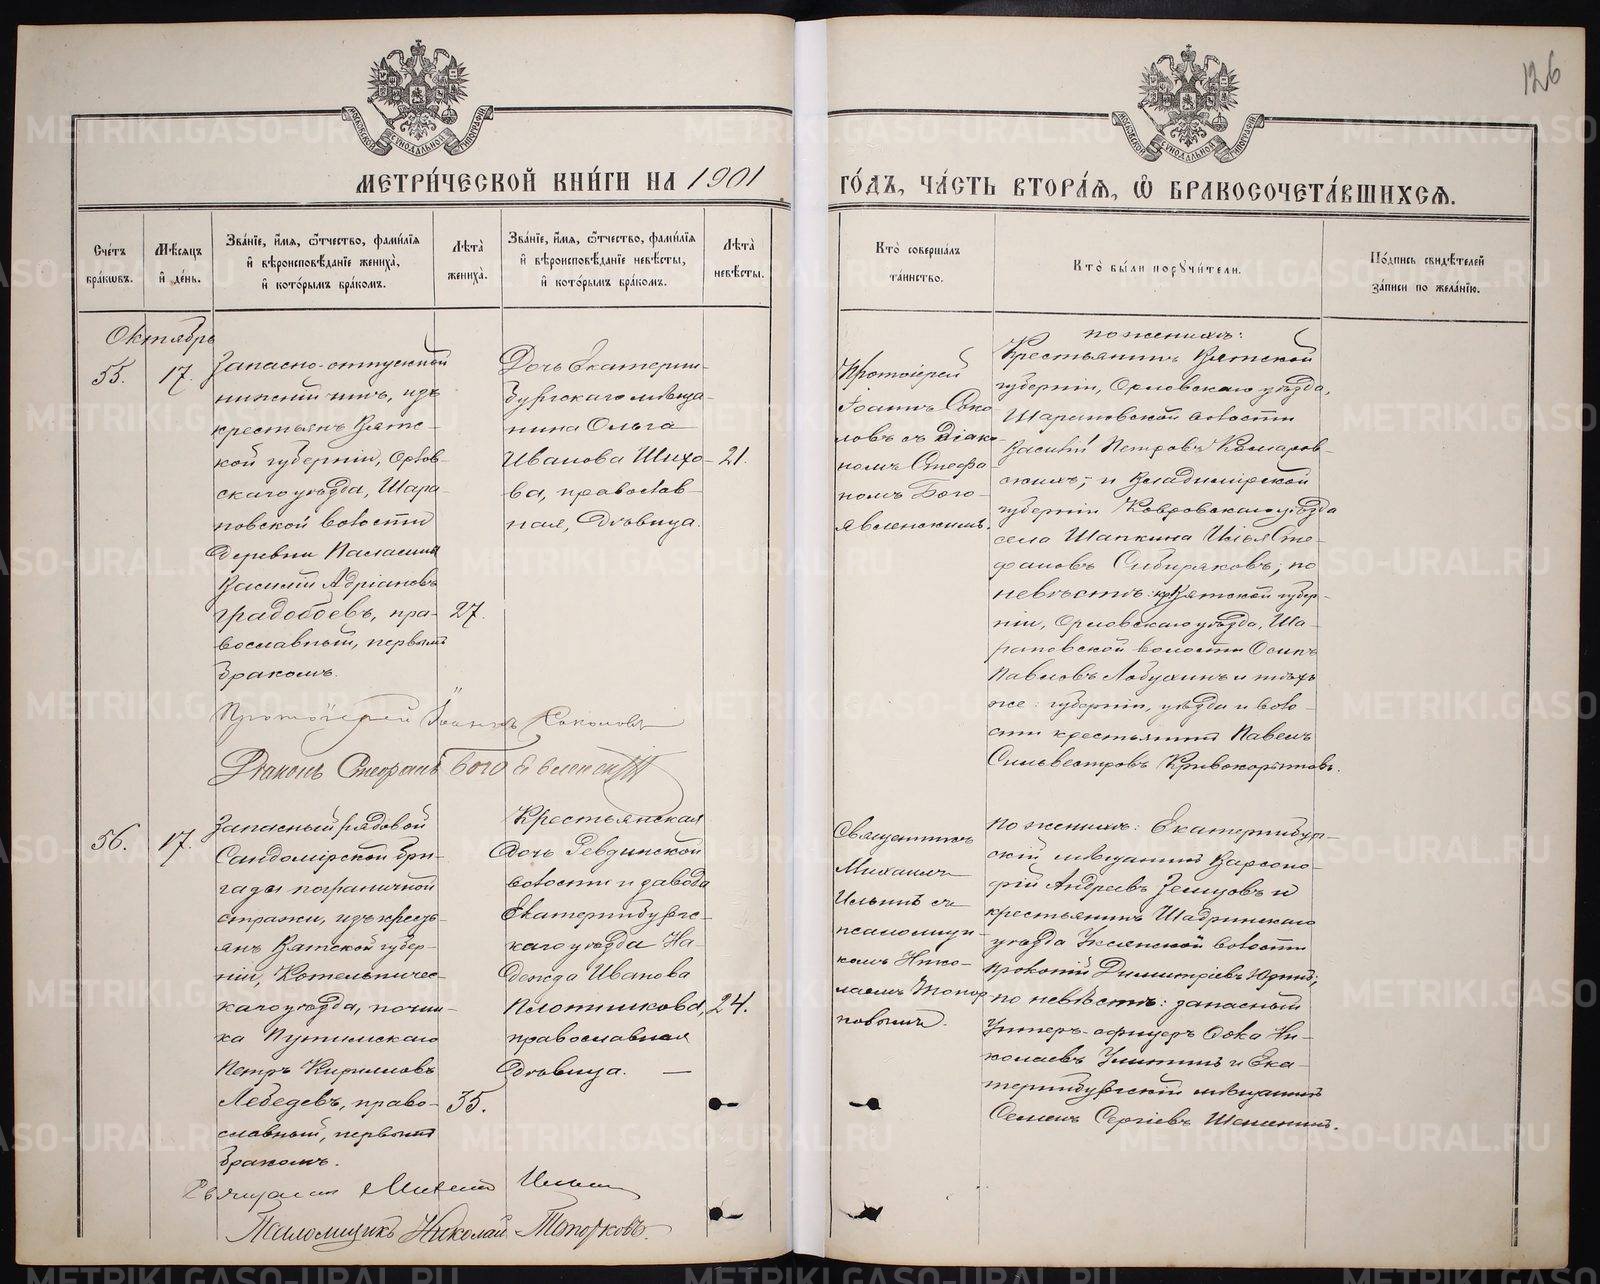 126
МЕТРИ́ЧЕСКОЙ КНИ́ГИ НА 1901
ГО́ДЪ, ЧА́СТЬ ВТОРА́Ѧ, Ѽ БРАКОСОЧЕТА́ВШИХСѦ.
Сче́тъ бра́кѡвъ.
Мѣ́сѧцъ и҆ де́нь.
Зва́нїе, и҆́мѧ, ѻ҆́тчество, фами́лїѧ и҆ вѣроисповѣ́данїе жениха̀, и҆ кото́рымъ бра́комъ.
Лѣта̀ жениха̀.
Зва́нїе, и҆́мѧ, ѻ҆́тчество, фами́лїѧ и҆ вѣроисповѣ́данїе невѣ́сты, и҆ кото́рымъ бра́комъ.
Лѣта̀ невѣ́сты.
Кто̀ соверша́лъ та́инство.
Кто̀ бы́ли порꙋчи́тели.
По́дпись свидѣ́телей за́писи по жела́нїю.
Октябрь
55.
17.
Запасно-отпускной
нижній чинъ, изъ
крестьянъ Вятс-
кой губерніи, Орлов-
скаго уѣзда, Шара-
новской волости
деревни
Василій Адріановъ
Градобоевъ, пра-
вославный, первымъ
бракомъ.
27.
Дочь Екатерин-
бургскаго мѣща-
нина Ольга
Иванова Шихо-
ва, православ-
ная, дѣвица.
21.
Протоіерей
Іоаннъ Соко
ловъ съ діако-
номъ Стефа
номъ Бого-
явленскимъ.
по женихѣ:
Крестьянинъ Вятской
губерніи, Орловскаго уѣзда,
Шарановской волости
Василій Петровъ Комаров-
скихъ; и Владимірской
губерніи Ковровскаго уѣзда
села Шапкина Илья Сте-
фановъ Сибиряковъ; по
невѣстѣ: кр. Вятской губер-
ніи, Орловскаго уѣзда, Ша-
рановской волости Осипъ
Павловъ Лобухинъ и тѣхъ
же: губерніи, уѣзда и воло-
сти крестьянинъ Павелъ
Сильвестровъ Кривокорытовъ.
Протоіерей Іоаннъ Соколовъ
Діаконъ Стефанъ Богоявленскій
56.
17.
Запасный рядовой
Сандомірской бри-
гады пограничной
стражи, изъ кресть-
янъ Вятской губер-
ніи, Котельничес-
каго уѣзда, почин-
ка Путимскаго
Петръ Кирилловъ
Лебедевъ, право-
славный, первымъ
бракомъ.
35.
Крестьянская
дочь Ревдинской
волости и завода
Екатеринбургс-
каго уѣзда На-
дежда Иванова
Плотникова,
православная
дѣвица. —
24.
Священникъ
Михаилъ
Ильинъ съ
псаломщи-
комъ Нико-
лаемъ Топор
ковымъ.
По женихѣ: Екатеринбур-
скій мѣщанинъ Варсоно-
фій Андреевъ Земцовъ и
крестьянинъ Шадринскаго
уѣзда Уксянской волости
Прокопій Димитріевъ Юдинъ;
по невѣстѣ: запасный
Унтеръ-офицеръ Фока Ни-
колаевъ Улитинъ и Ека-
теринбургскій мѣщанинъ
Семенъ Сергіевъ Шаменинъ.
Священникъ Михаилъ Ильинъ
Псаломщикъ Николай Топорковъ.
METRIKI.GASO-URAL.RU